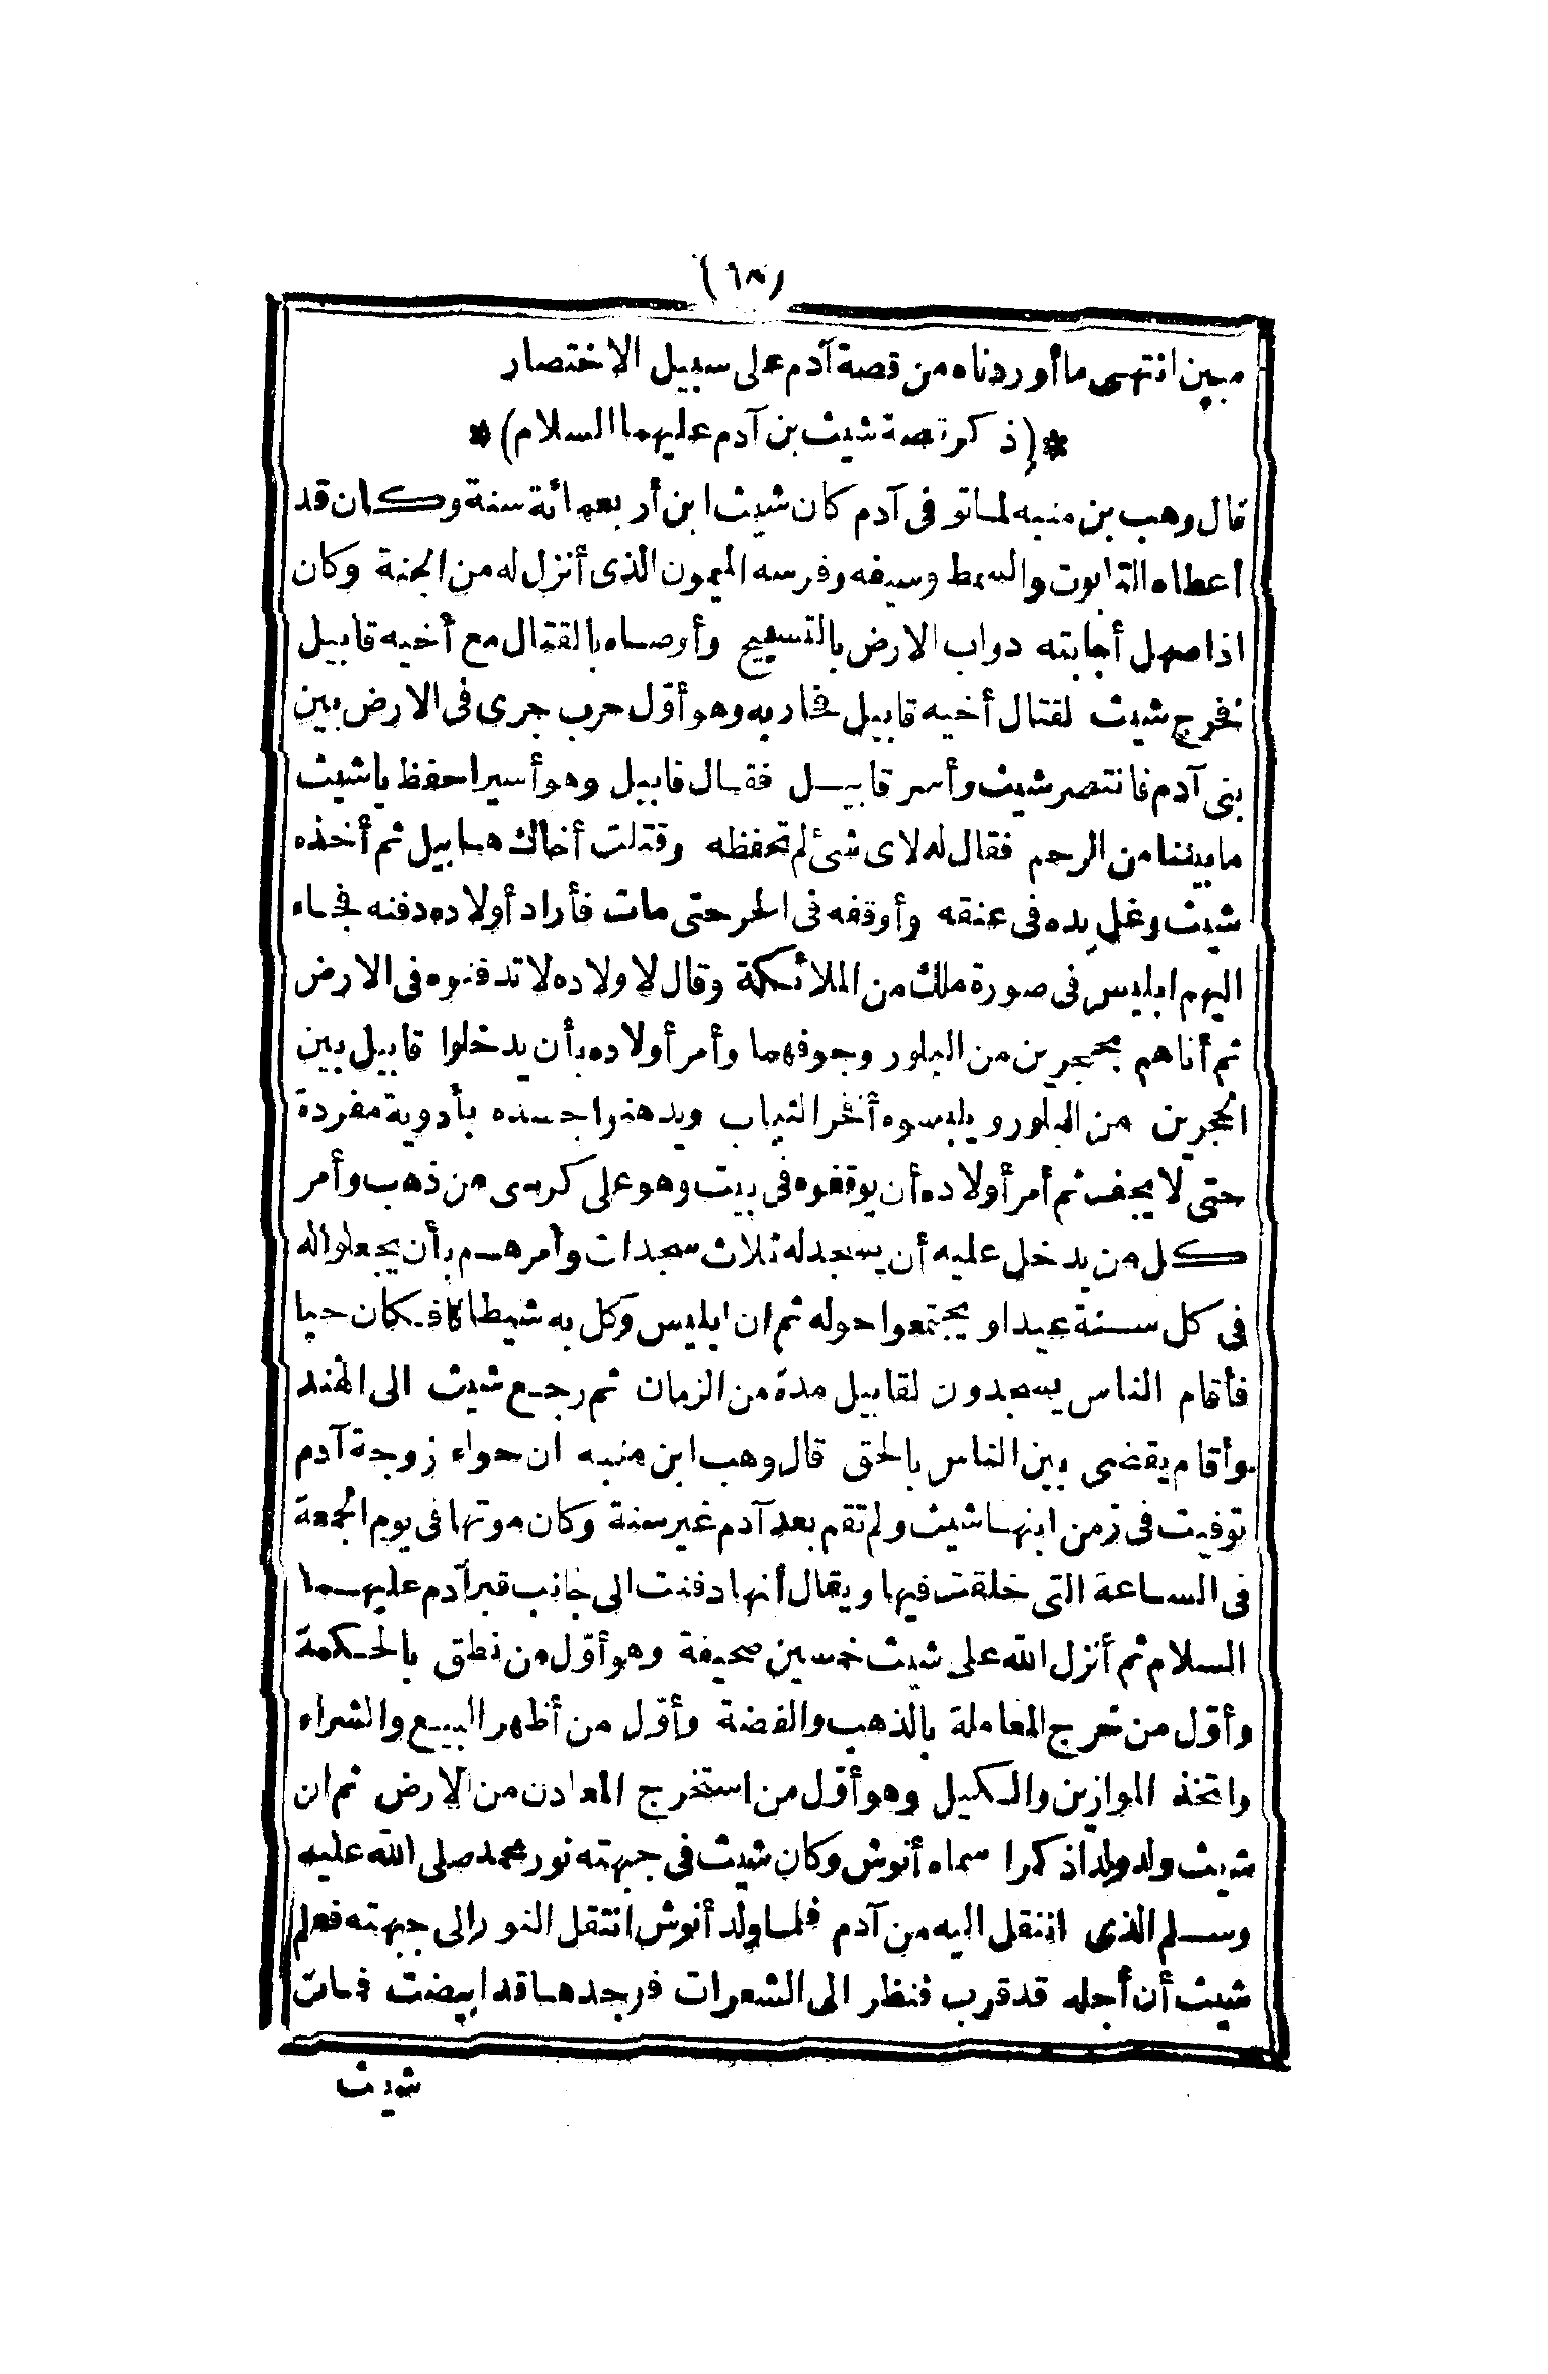 (٦٨)
مبين انتهى ما أوردناه من قصة آدم على سبيل الاختصار
*(ذكر قصة شيث بن آدم عليهما السلام)*
قال وهب بن منبه لما توفى آدم كان شيث ابن أربعمائة سنة وكان قد
أعطاه التابوت والسمط وسيفه وفرسه الميمون الذى أنزل له من الجنة وكان
اذا صهل أجابته دواب الارض بالتسبيح وأوصاه بالقتال مع أخيه قابيل
فخرج شيث لقتال أخيه قابيل فحاربه وهو أوّل حرب جرى فى الارض بين
بنى آدم فانتصر شيث وأسر قابيل فقال قابيل وهو أسير احفظ يا شيث
ما بيننا من الرحم فقال له لاى شئ لم تحفظه وقتلت أخاك هابيل ثم أخذه
شيث وغل يده فى عنقه وأوقفه فى الحر حتى مات فأراد أولاده دفنه فجاء
اليهم ابليس فى صورة ملك من الملائكة وقال لاولاده لا تدفنوه فى الارض
ثم أتاهم بحجرين من البلور وجوفهما وأمر أولاده بأن يدخلوا قابيل بين
الحجرين من البلور ويلبسوه أفخر الثياب ويدهنوا جسده بأدوية مفردة
حتى لا يجف ثم أمر أولاده أن يوقفوه فى بيت وهو على كرسى من ذهب وأمر
كل من يدخل عليه أن يسجد له ثلاث سجدات وأمرهم بأن يجعلوا له
فى كل سنة عيدا ويجتمعوا حوله ثم ان ابليس وكل به شيطانا فكان حيا
فأقام الناس يسجدون لقابيل مدة من الزمان ثم رجع شيث الى الهند
وأقام يقضى بين الناس بالحق قال وهب ابن منبه ان حواء زوجة آدم
توفيت فى زمن ابنها شيث ولم تقم بعد آدم غير سنة وكان موتها فى يوم الجمعة
فى الساعة التى خلقت فيها ويقال أنها دفنت الى جانب قبر آدم عليهما
السلام ثم أنزل الله على شيث خمسين صحيفة وهو أوّل من نطق بالحكمة
وأوّل من خرج المعاملة بالذهب والفضة وأوّل من أظهر البيع والشراء
واتخذ الموازين والكيل وهو أوّل من استخرج المعادن من الارض ثم ان
شيث ولد ولد اذكرا سماه أنوش وكان شيث فى جبهته نور محمد صلى الله عليه
وسلم الذى انتقل اليه من آدم فلما ولد أنوش انتقل النور الى جبهته فعلم
شيث أن أجله قد قرب فنظر الى الشعرات فوجدها قد ابيضت فمات
شيث